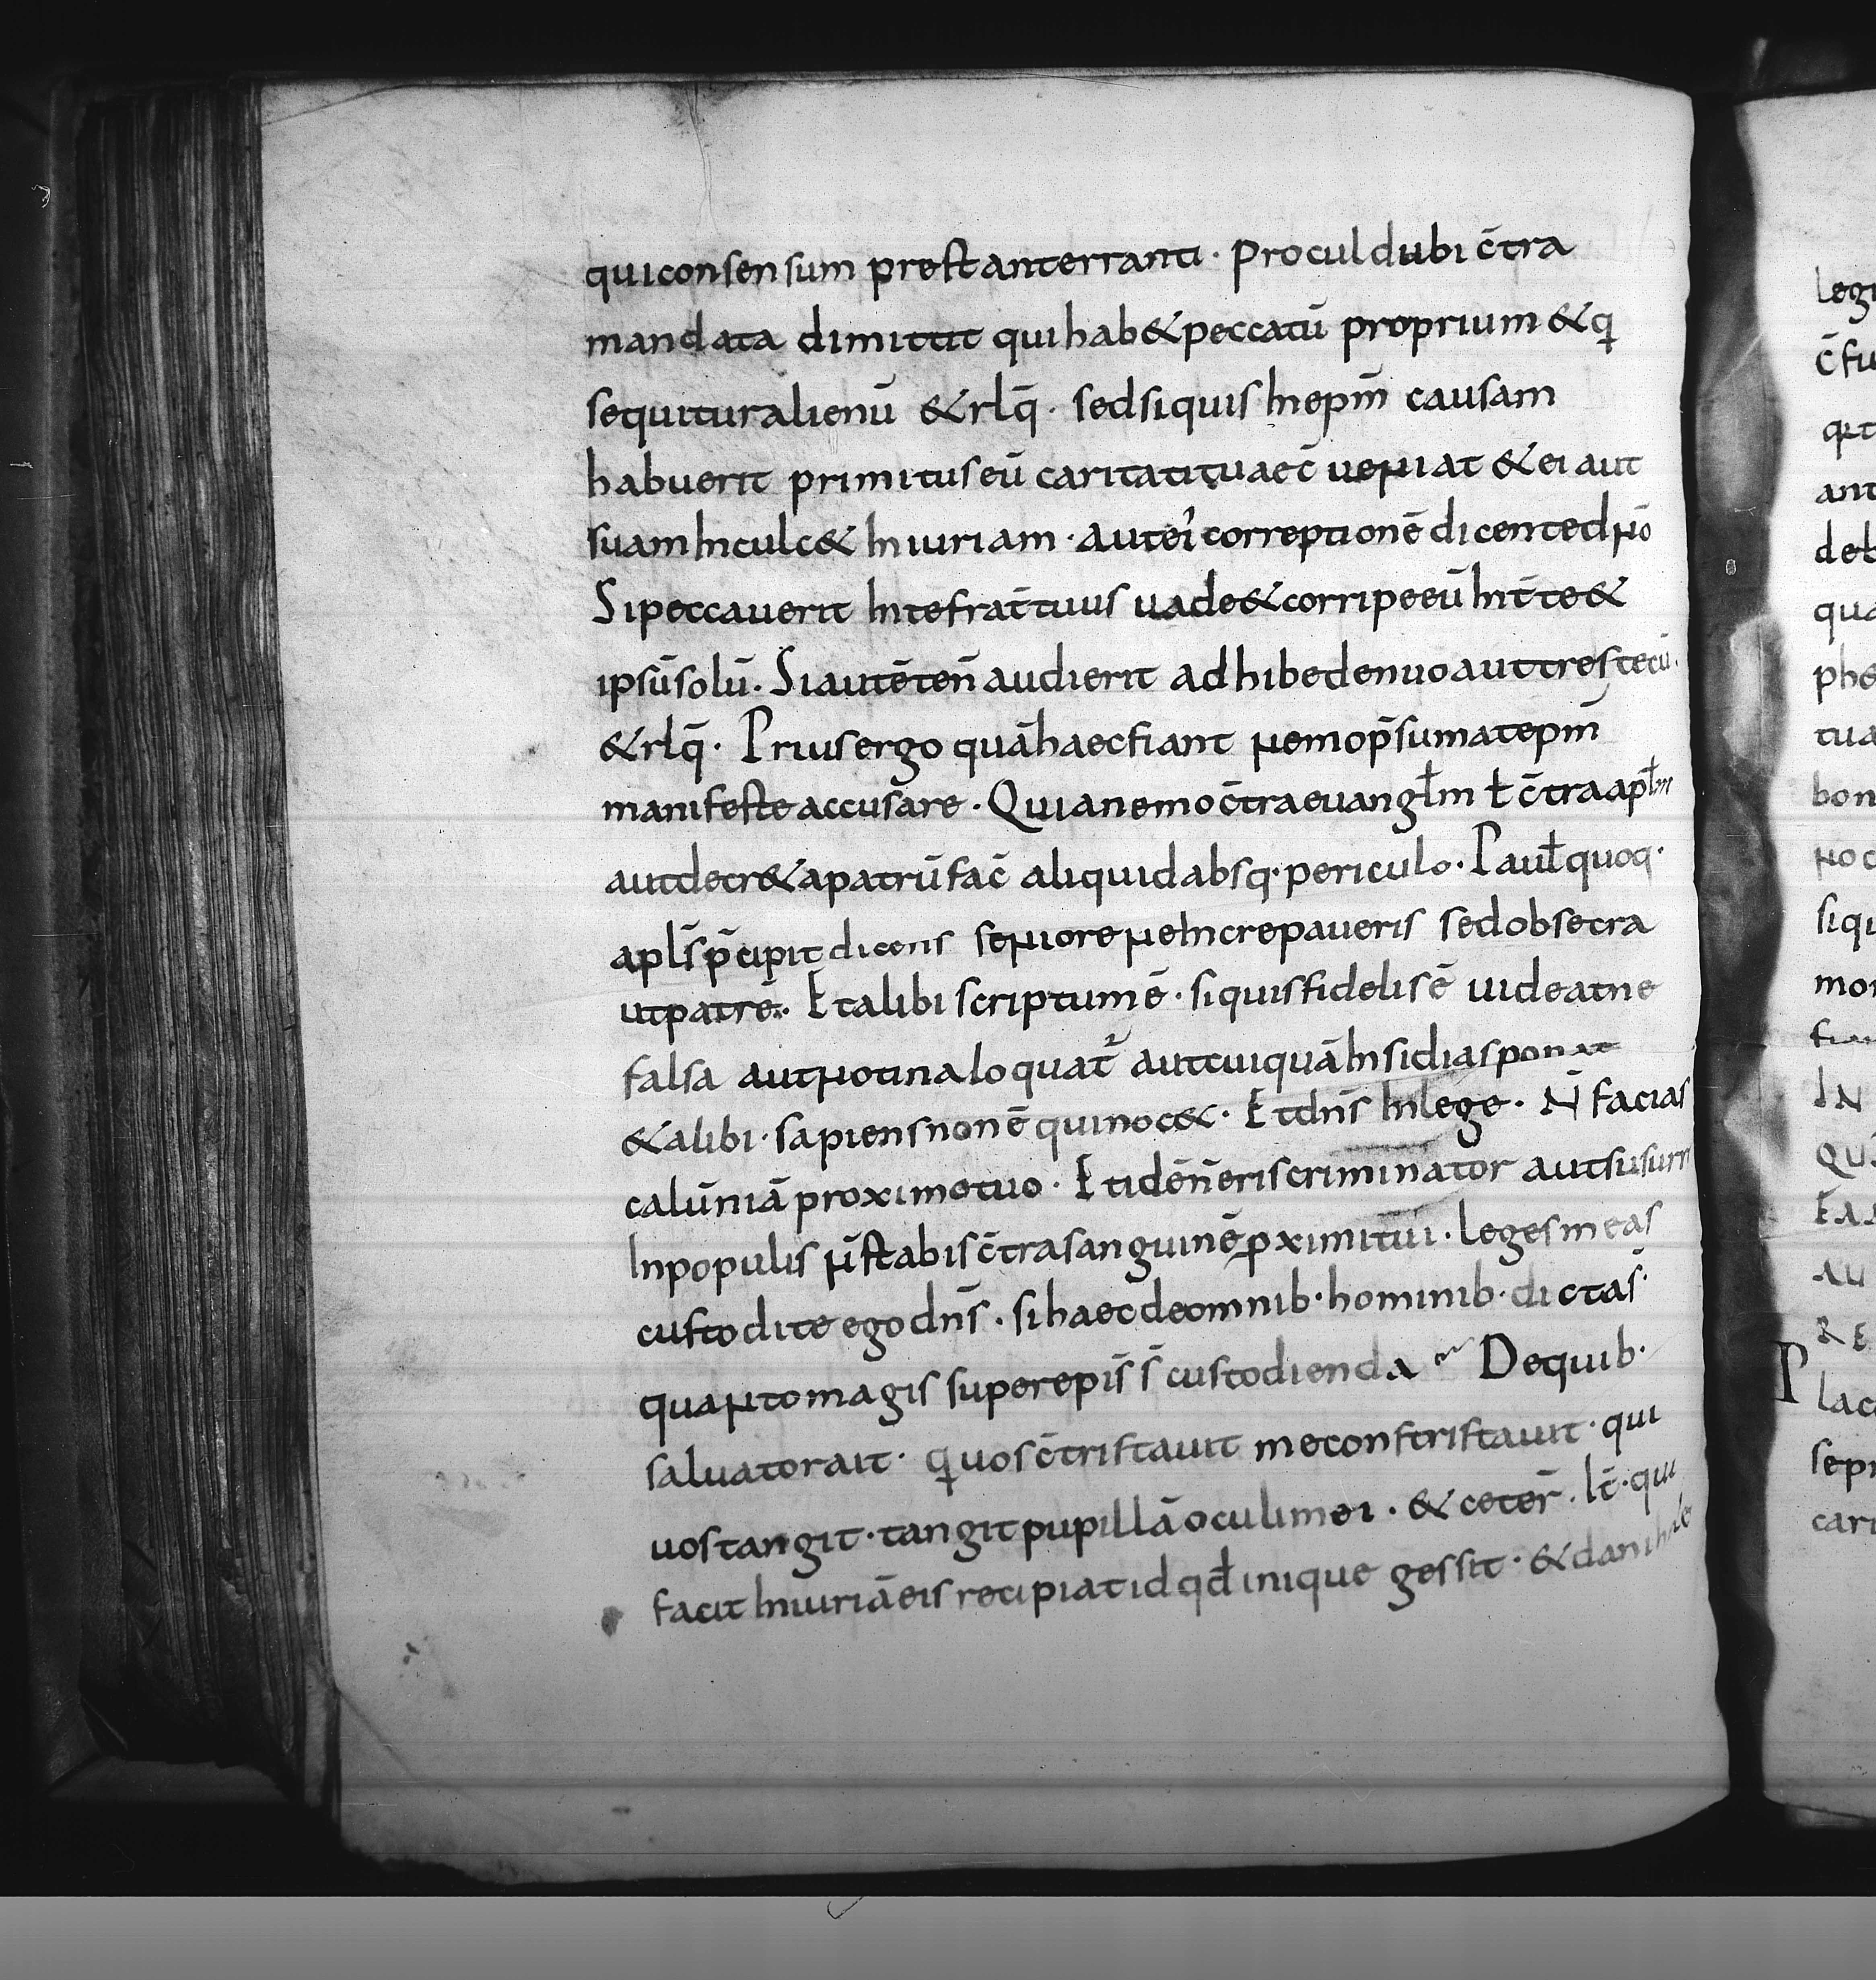 qui consensum prestant erranti · procul dubi c̄tra
mandata dimittit qui hab& peccatū proprium & q
sequitur alienū & rlq̄ · sed si quis in ep̄m causam
habuerit primitus eū caritati tuae c̄ueniat & ei aut
suam inculc& iniuriam · aut ei correptionē dicente dn̄o
Si peccauerit in te frat̄ tuus uade & corripe eū int̄ te &
ipsū solū. Si autē te n̄ audierit adhibe denuo aut tres tecū.
& rlq̄ · Prius ergo quā haec fiant nemo p̄sumat ep̄m
manifeste accusare · Quia nemo c̄tra euangłm ł c̄tra apłm
aut decr&a patrū fac̄ aliquid absq· periculo · Pauł quoq·
apl̄s p̄cipit dicens seniore ne increpaueris sed obsecra
ut patrē. Et alibi scriptum ē · si quis fidelis ē uideat ne
falsa aut notina loquat̄ aut cuiquā insidias ponat
& alibi · sapiens non ē qui noc& · Et dn̄s in lege · N̄ facias
calūniā proximo tuo · Et idē n̄ eris criminator aut susurr
In populis n̄ stabis c̄tra sanguinē pximi tui · leges meas
custodite ego dn̄s · si haec de omnib· hominib· dicta s̄·
quanto magis super epis̄ s̄ custodienda De quib·
saluator ait · q uos c̄tristauit me constristauit · qui
uos tangit · tangit pupillā oculi mei · & ceter̄ · It̄ · qui
facit iniuriā eis recipiat id qđ inique gessit · &